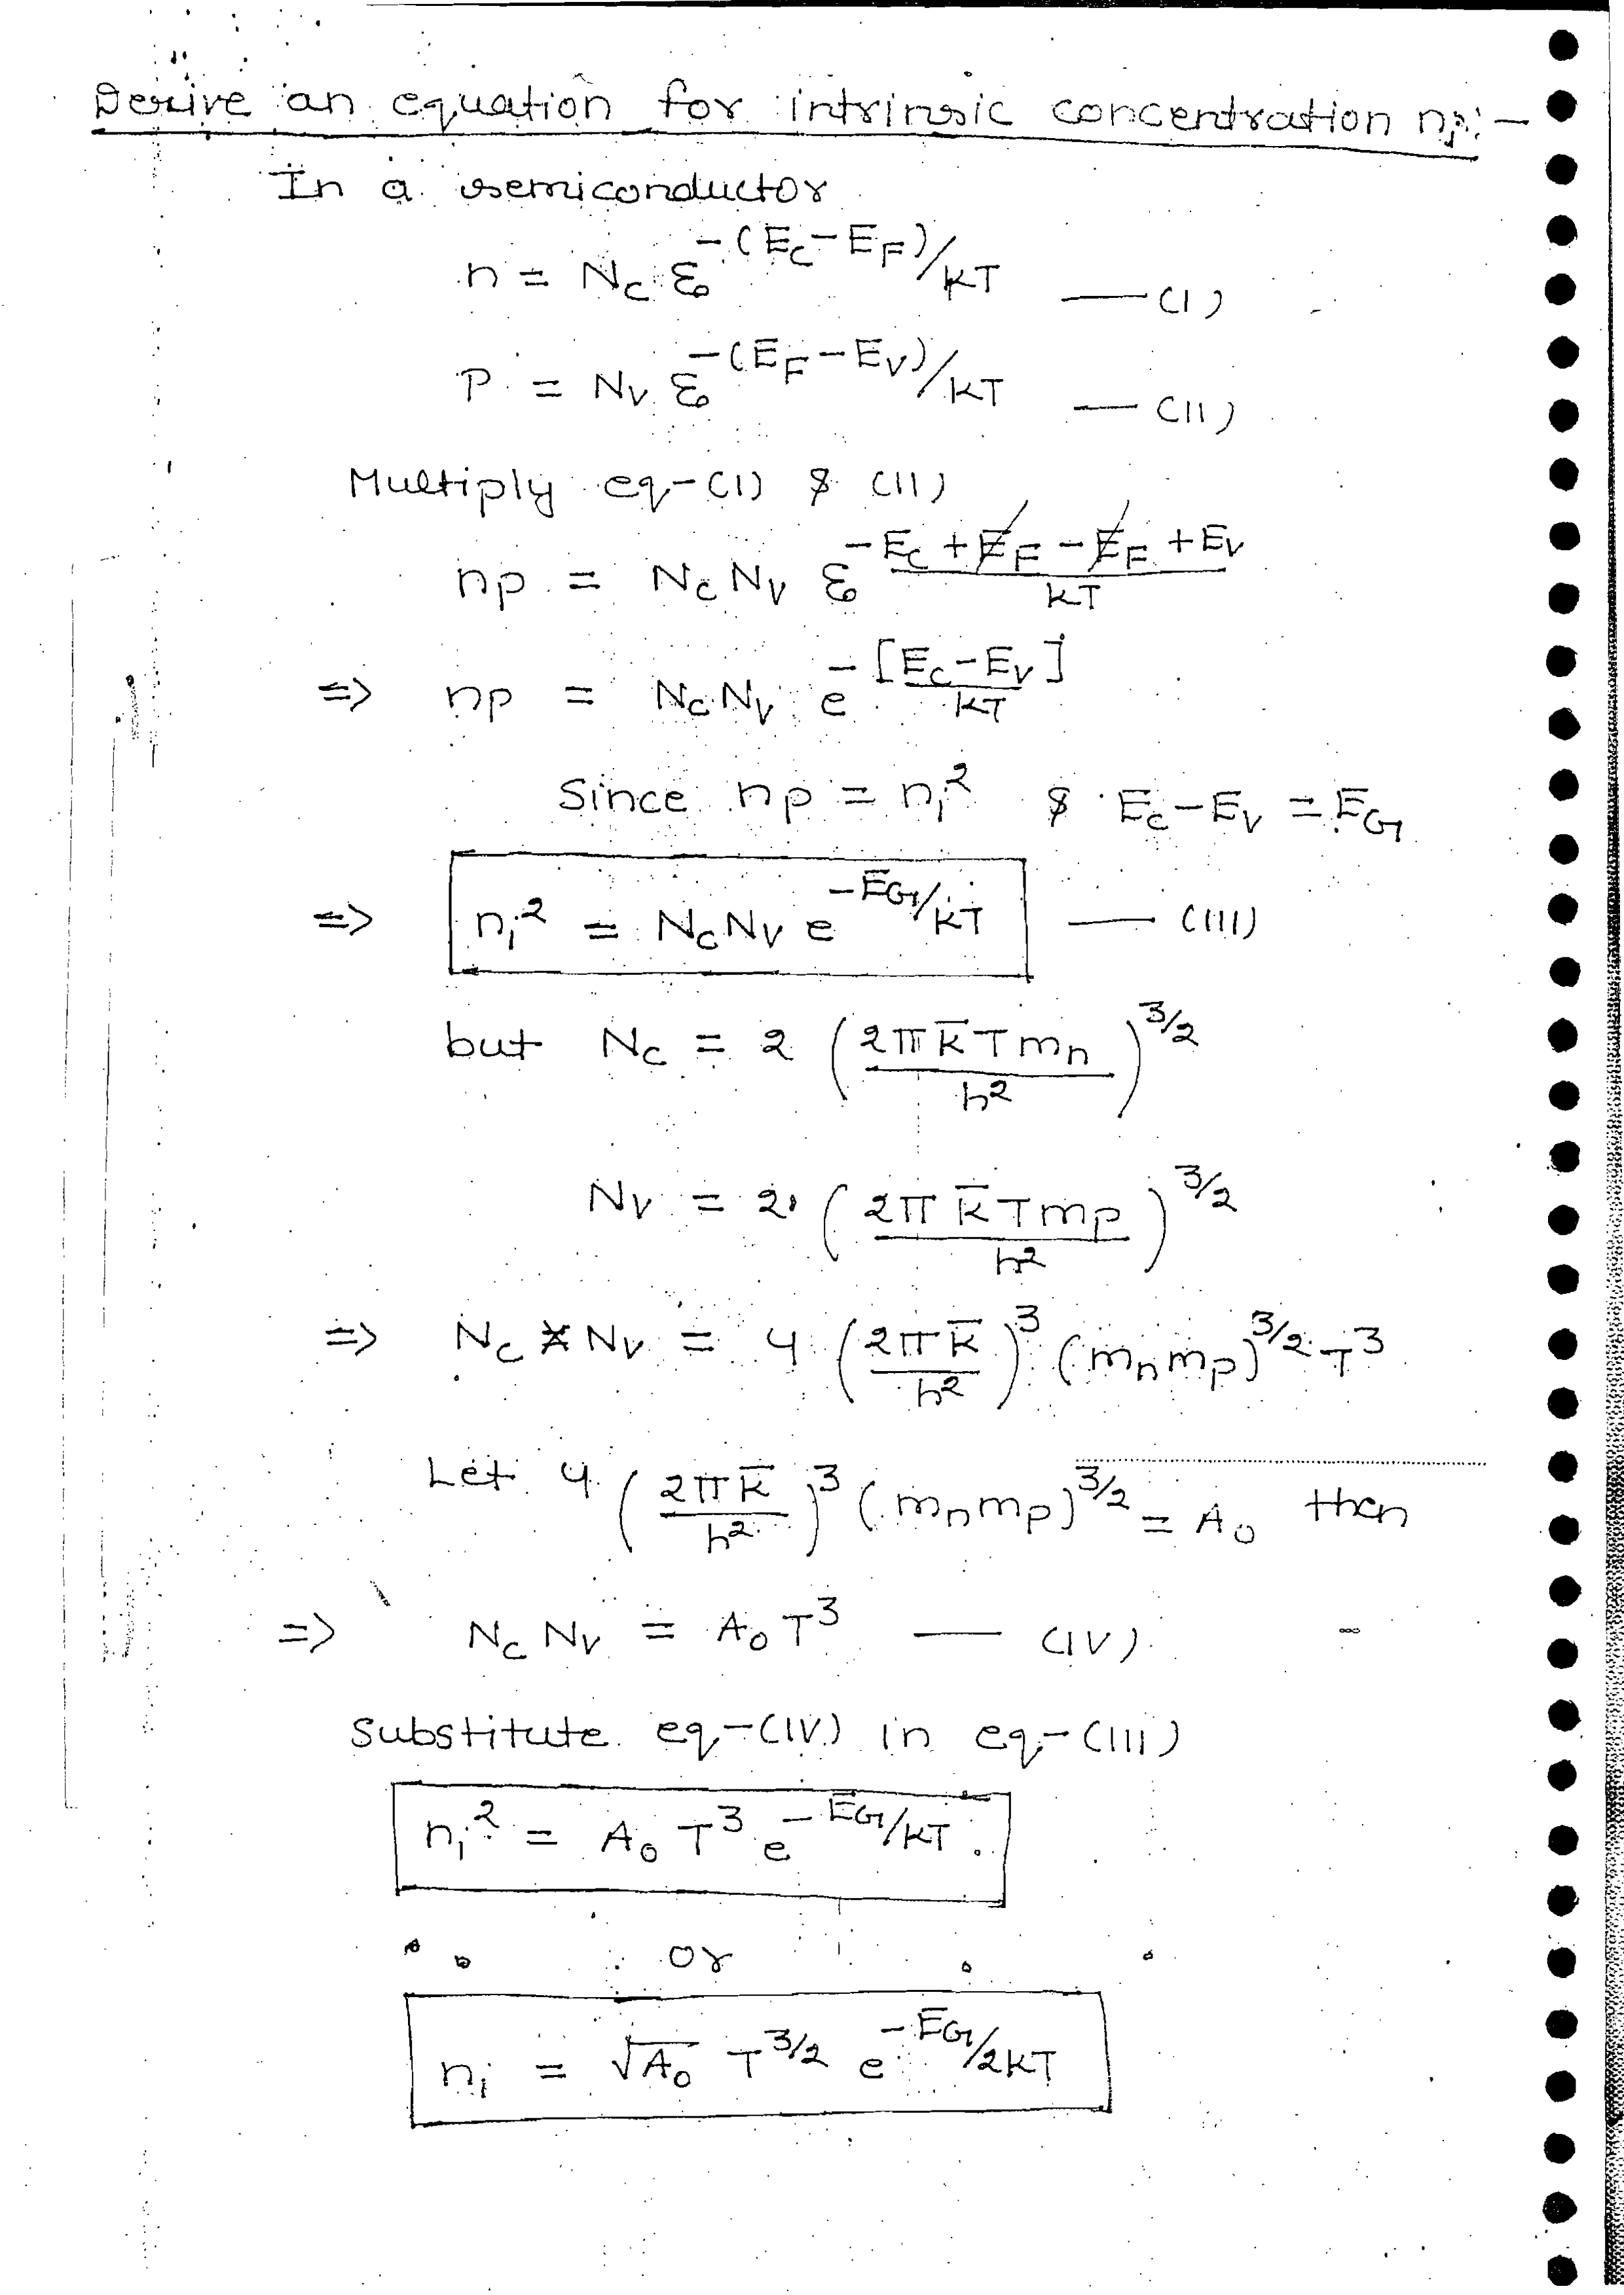 Derive an equation for intrinsic concentration nᵢ:-
In a semiconductor
n = N_C ε^-(E_C-E_F)/kT —(I)
P = N_V ε^-(E_F-E_V)/kT —(II)
Multiply eq-(I) & (II)
np = N_C N_V ε^(-E_C+E_F-E_F+E_V)/kT
=> np = N_C N_V e^-[E_C-E_V]/kT
Since np = nᵢ² & E_C-E_V = E_G
=> nᵢ² = N_C N_V e^-E_G/kT — (III)
but N_C = 2 (2π k̅ T m_n / h²)^3/2
N_V = 2 (2π k̅ T m_p / h²)^3/2
=> N_C * N_V = 4 (2π k̅ / h²)³ (m_n m_p)^3/2 T³
Let 4 (2π k̅ / h²)³ (m_n m_p)^3/2 = A₀ then
=> N_C N_V = A₀ T³ — (IV)
Substitute eq-(IV) in eq-(III)
nᵢ² = A₀ T³ e^-E_G/kT.
or
nᵢ = √A₀ T^3/2 e^-E_G/2kT